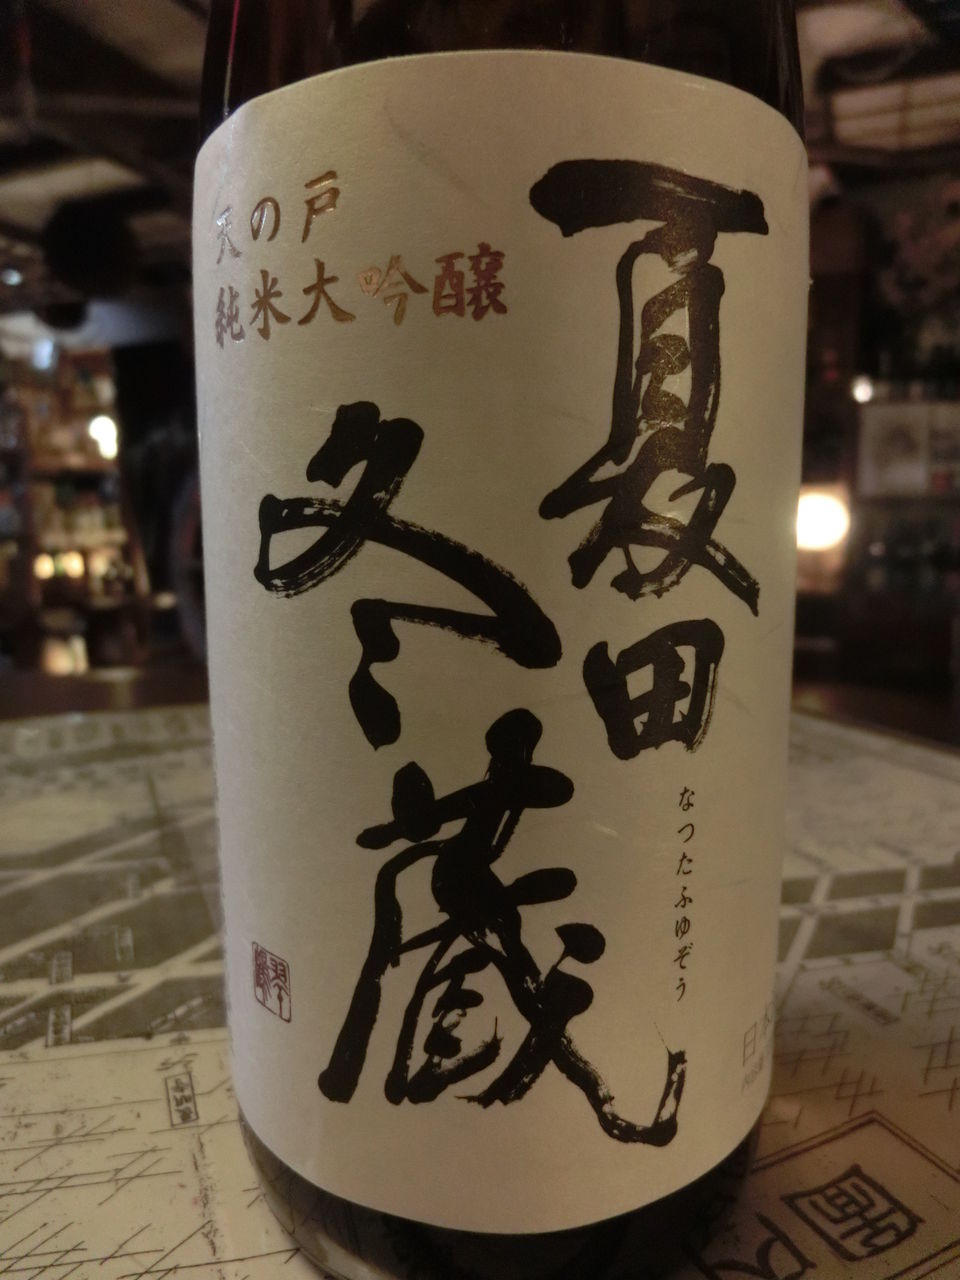 天の戸
純米大吟醸
夏田
冬蔵
なつたふゆぞう